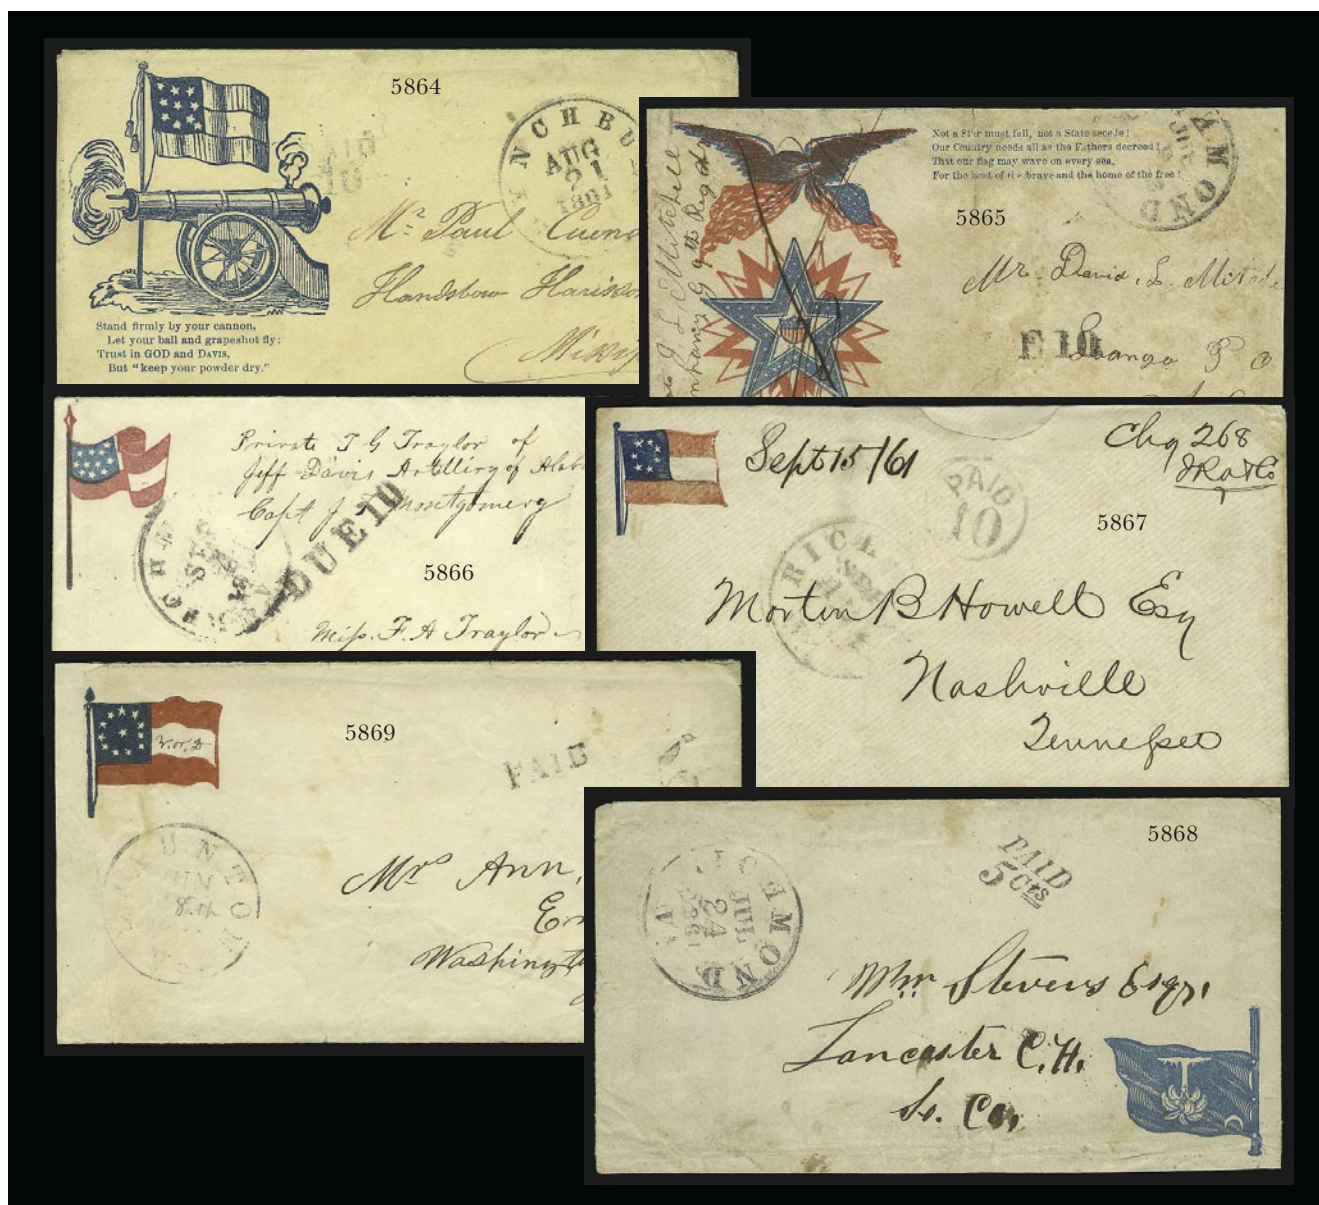 5864
NCHBU
AUG
21
1861
Mr. Paul
Handsboro
Stand firmly by your cannon,
Let your ball and grapeshot fly;
Trust in GOD and DAVIS,
But "keep your powder dry."
Not a Star must fall, not a State secede!
Our Country needs all as the Fathers decreed!
That our flag may wave on every sea,
For the land of the brave and the home of the free!
MOND
5865
Mr. David. L.
E 10
P O
Private T G Traylor of
Jeff Davis Artillery of
Capt J T Montgomery
DUE 10
5866
Miss. F. A Traylor
Sept 15/61
Chg 268
PAID
10
5867
RICH
Morton B Howell Esq
Nashville
Tennessee
5869
V. or. D
PAID
AUNTON
JUN
8th
Mrs Ann,
Washingt
5868
PAID
5 Cts
ICHMOND
VA
JUL
24
1861
Wm Stevens Esqr,
Lancaster C. H.
So. Ca,